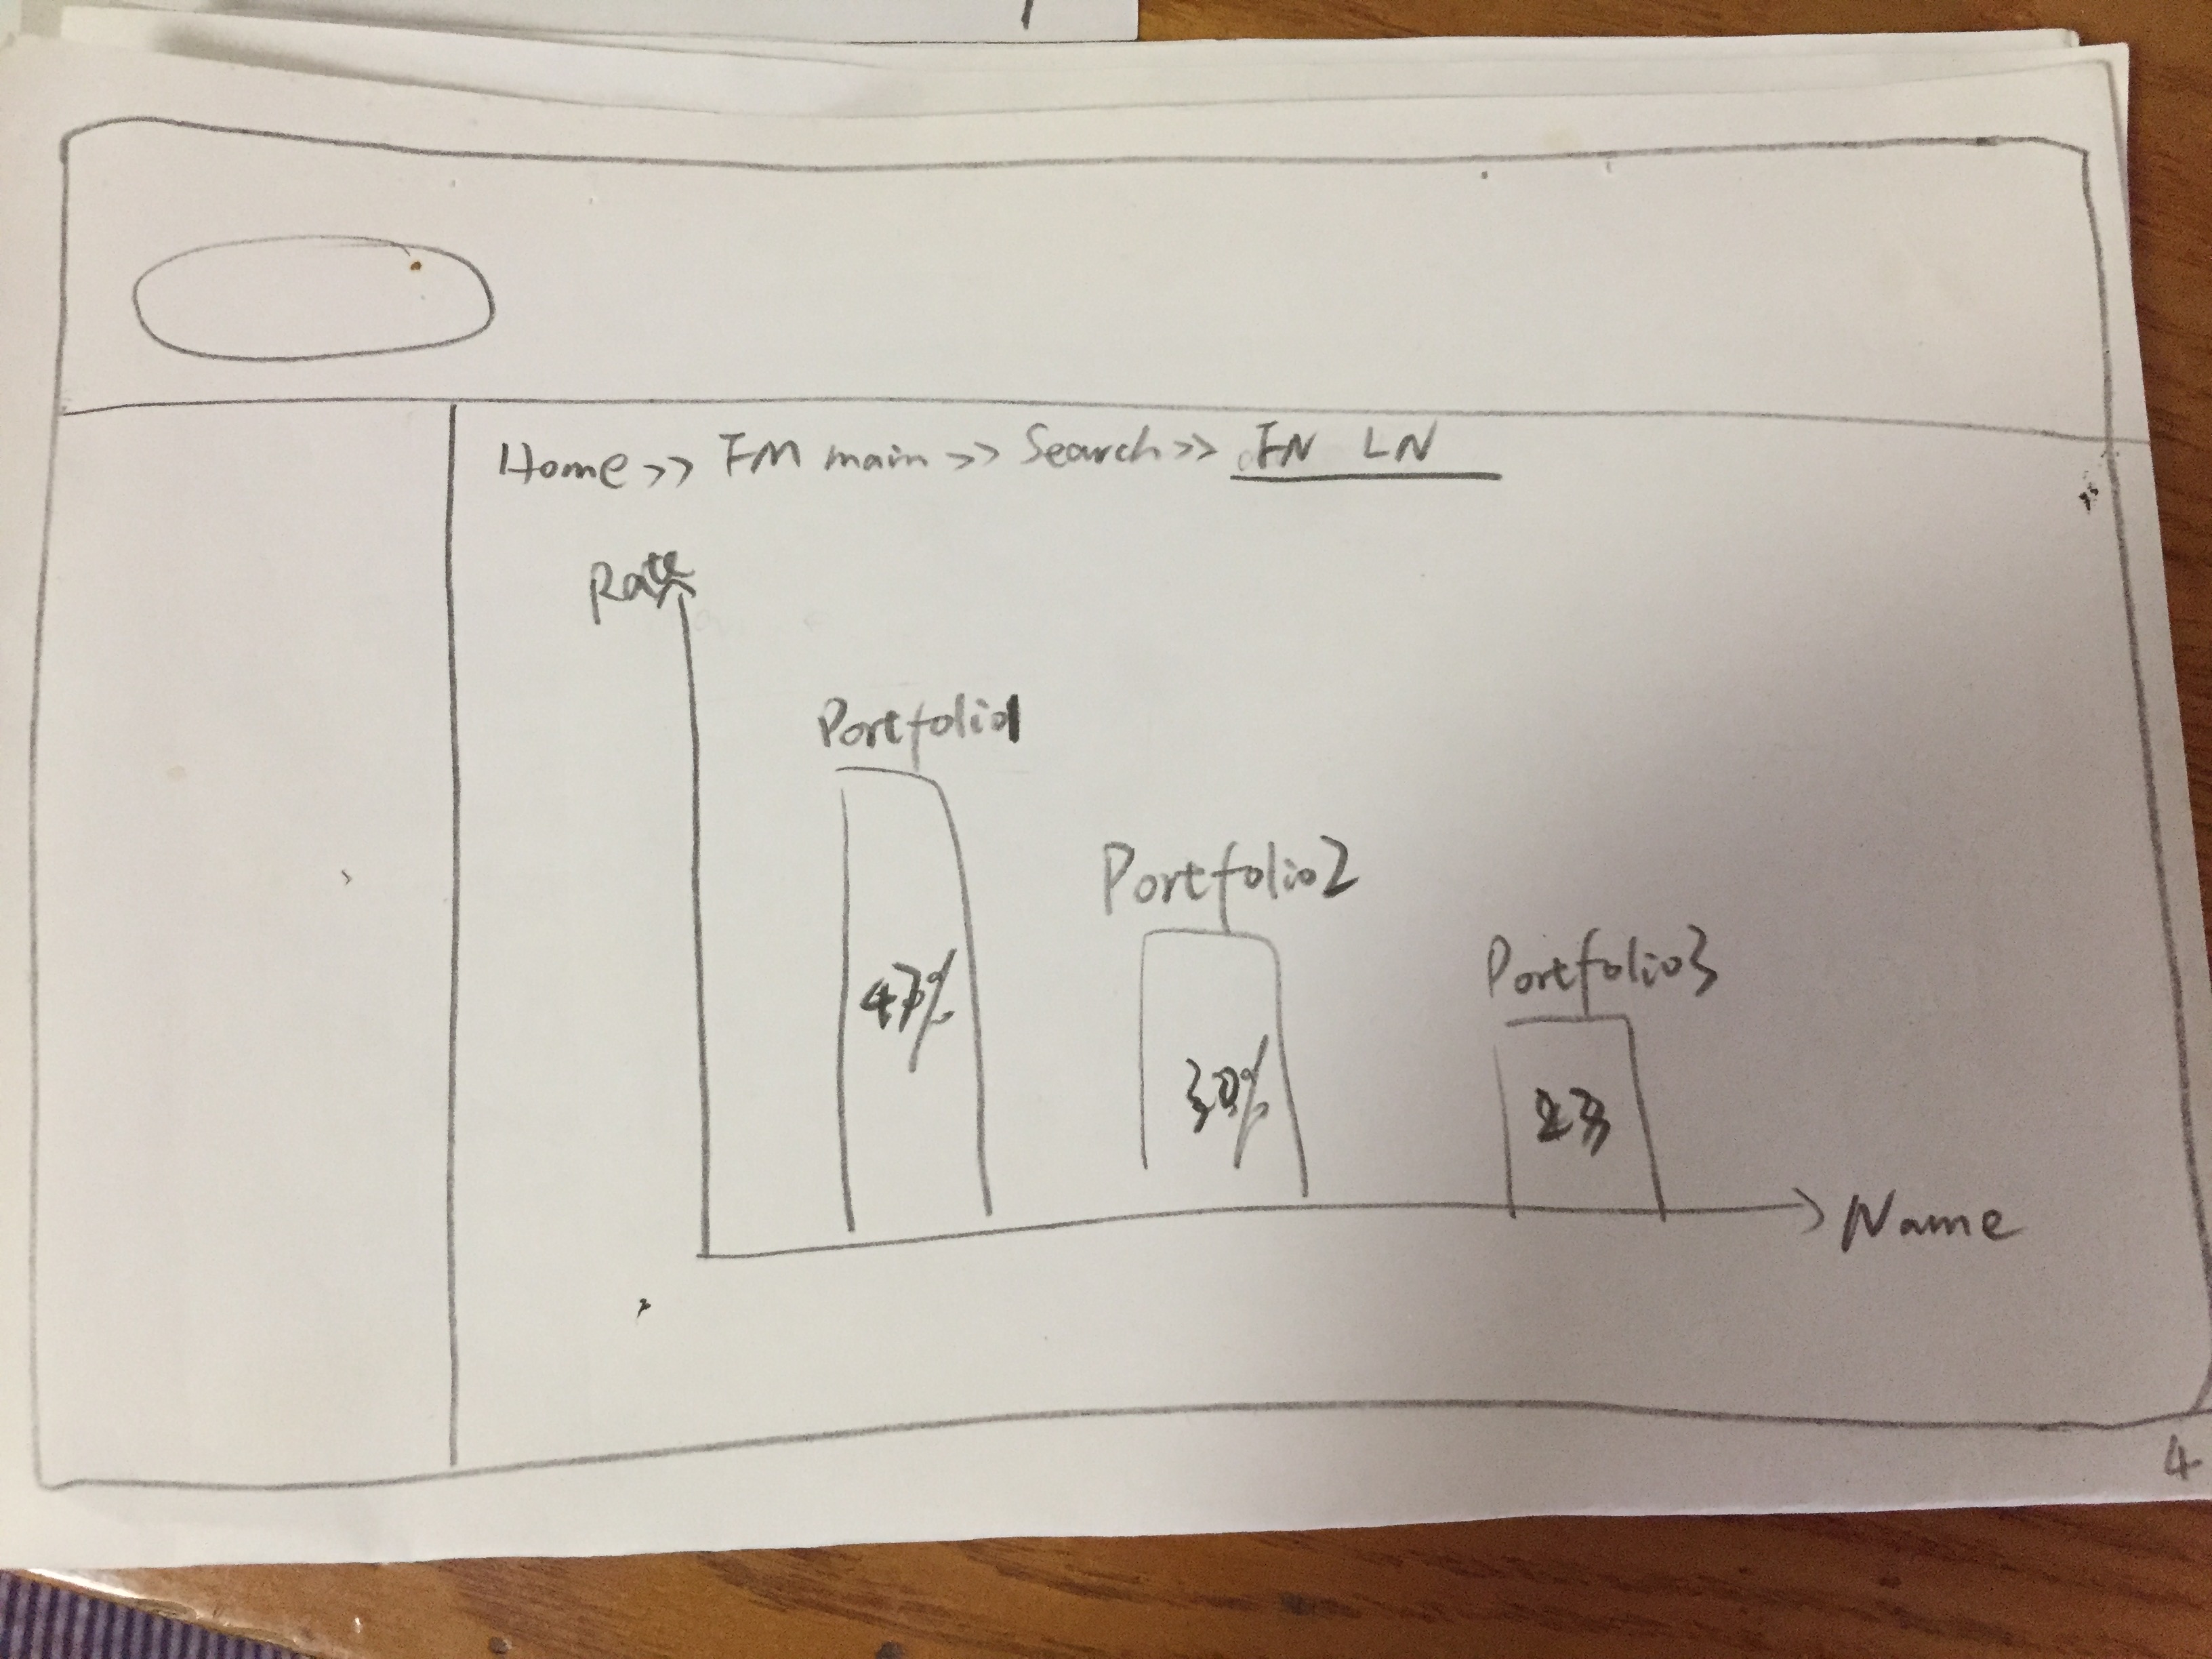 Home >> FM main >> Search >> FN LN
Rate
Portfolio1
Portfolio2
Portfolio3
47%
30%
23
Name
4